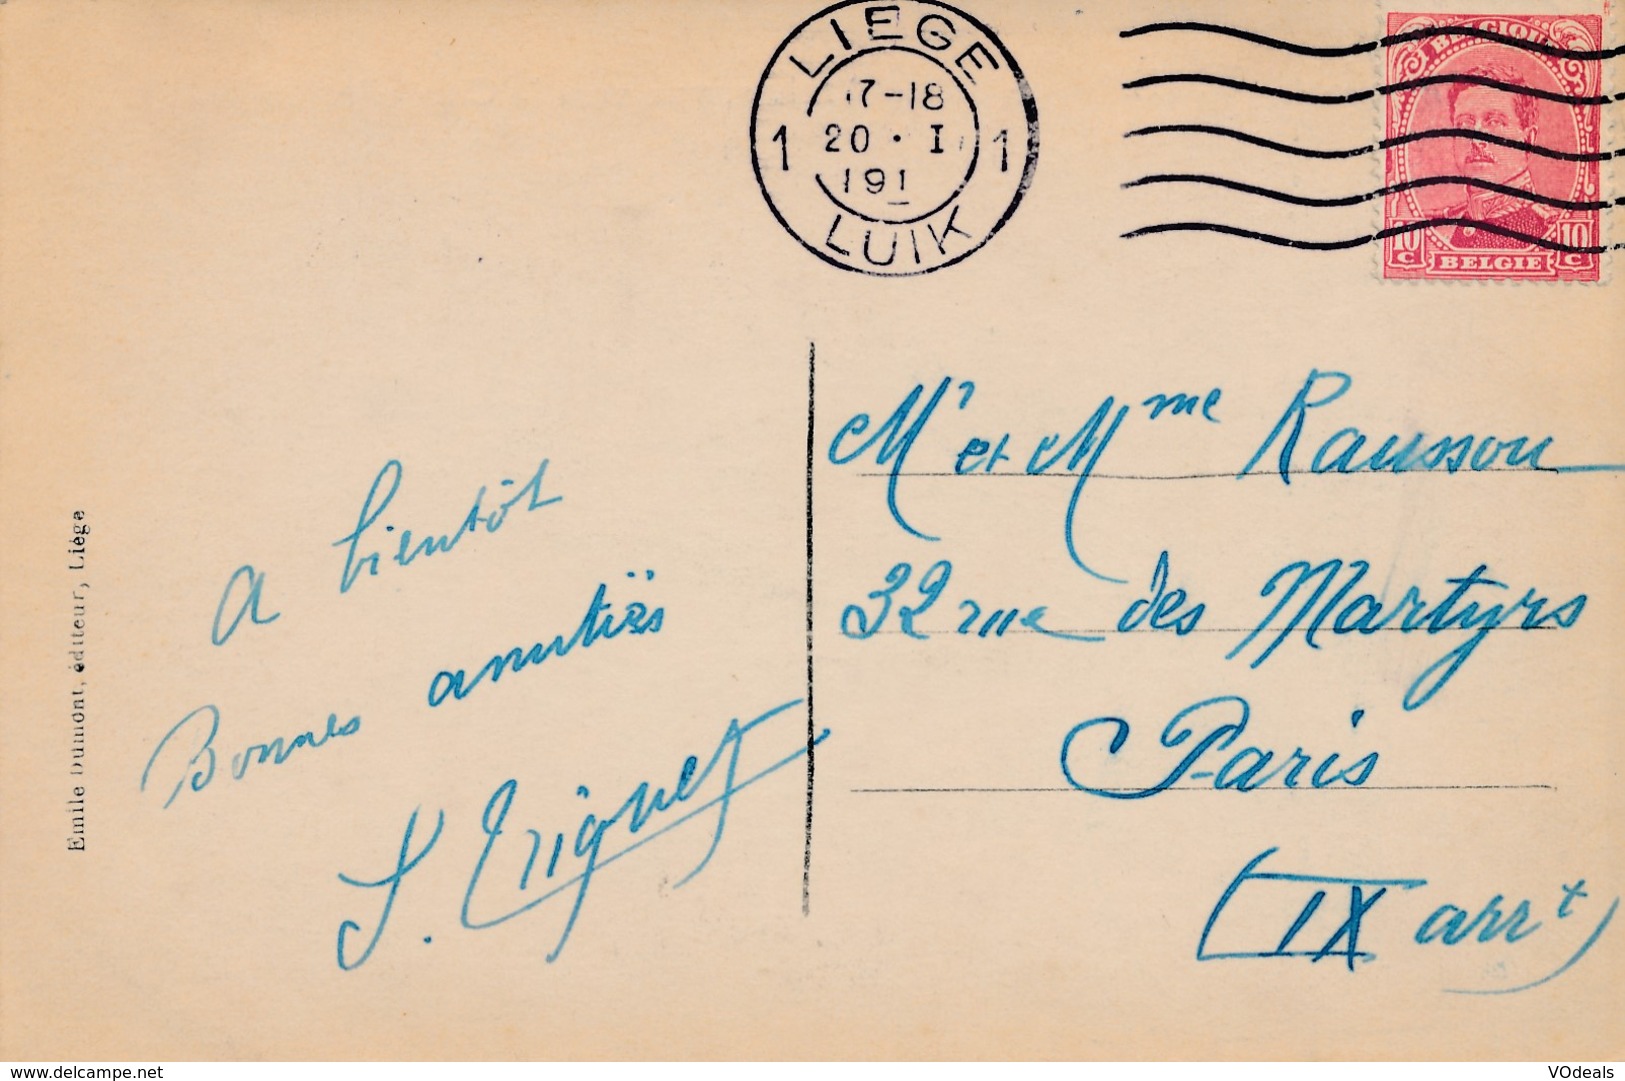 LIEGE
17-18
1 20 · I 1
191
LUIK
BELGIQUE
10 C BELGIE 10 C
Mr et Mme Rausson
32 rue des Martyrs
Paris
(IX arrt)
A bientôt
Bonnes amitiés
Emile Dumont, éditeur, Liége
www.delcampe.net
VOdeals